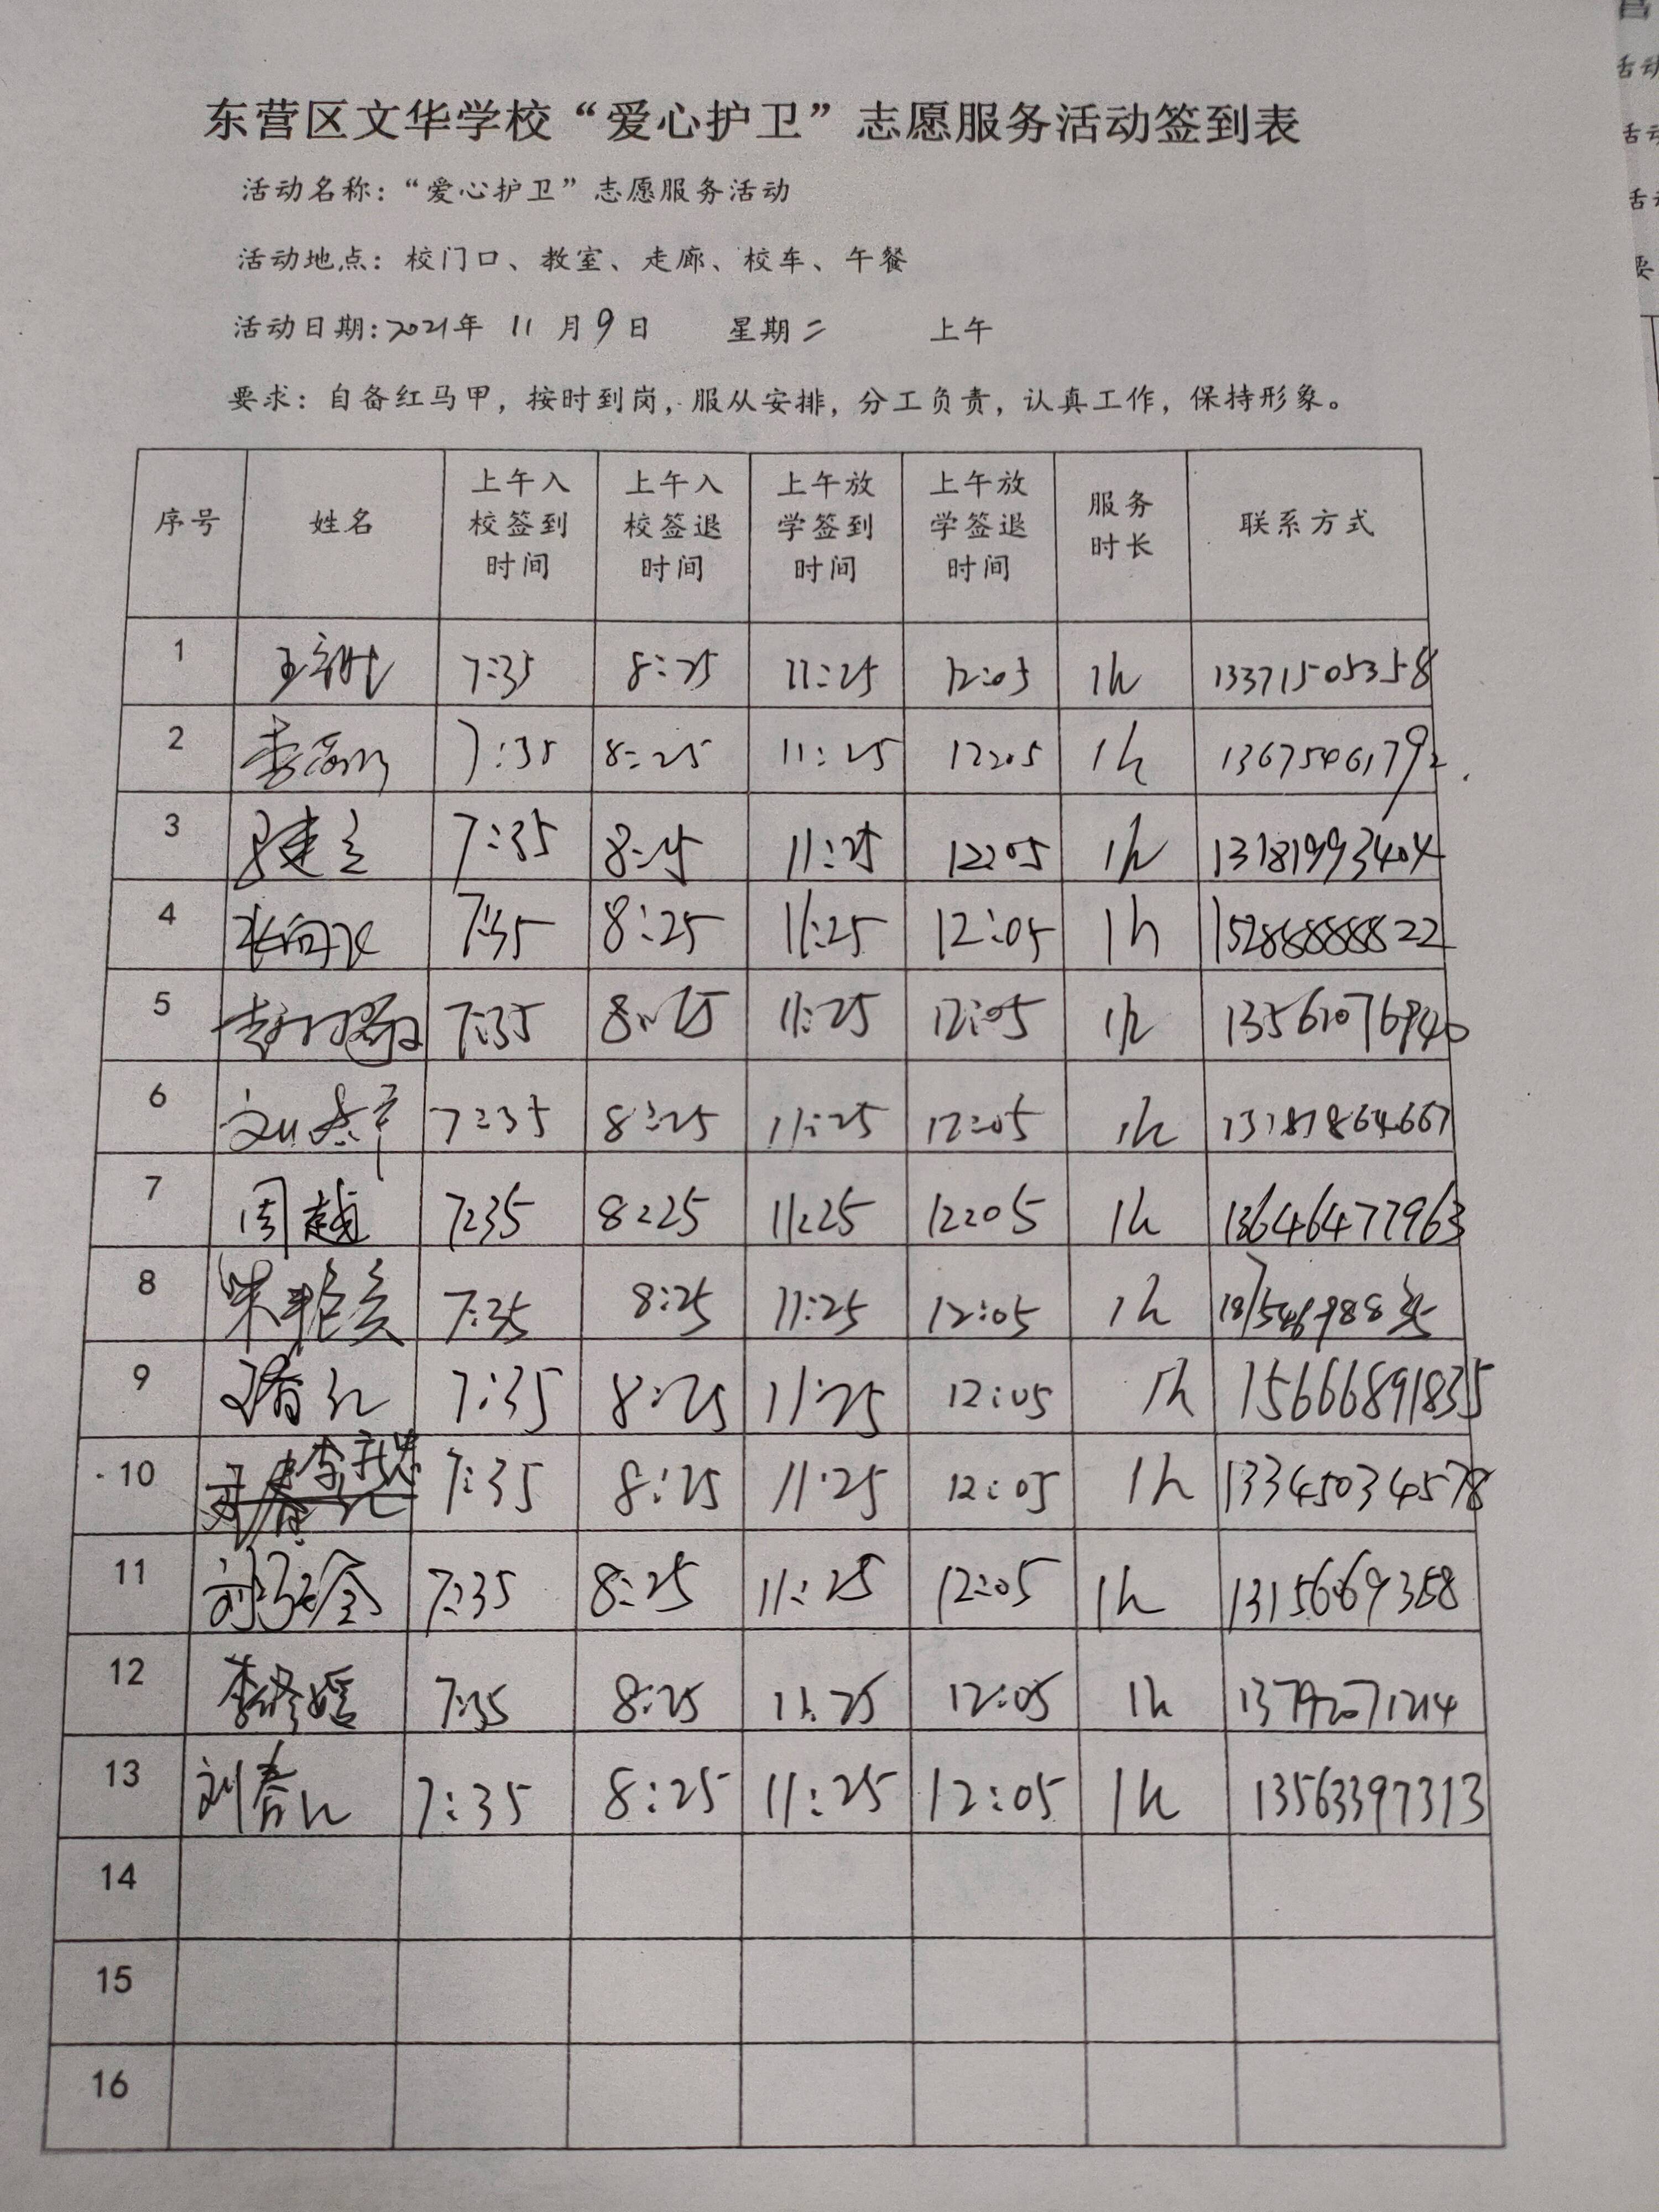 东营区文华学校“爱心护卫”志愿服务活动签到表
活动名称：“爱心护卫”志愿服务活动
活动地点：校门口、教室、走廊、校车、午餐
活动日期：2021年 11 月 9 日 星期二 上午
要求：自备红马甲，按时到岗，服从安排，分工负责，认真工作，保持形象。
序号 姓名 上午入校签到时间 上午入校签退时间 上午放学签到时间 上午放学签退时间 服务时长 联系方式
1 7:35 8:25 11:25 12:05 1h 13371505358
2 7:35 8:25 11:25 12:05 1h 13675461792
3 7:35 8:25 11:25 12:05 1h 13181993404
4 7:35 8:25 11:25 12:05 1h 15288888822
5 7:35 8:25 11:25 12:05 1h
6 7:35 8:25 11:25 12:05 1h 13181864667
7 周越 7:35 8:25 11:25 12:05 1h 13646477963
8 7:35 8:25 11:25 12:05 1h
9 7:35 8:25 11:25 12:05 1h 15666891835
10 7:35 8:25 11:25 12:05 1h 13345034578
11 7:35 8:25 11:25 12:05 1h
12 李修媛 7:35 8:25 11:25 12:05 1h 13792071214
13 刘春红 7:35 8:25 11:25 12:05 1h 13563397313
14
15
16